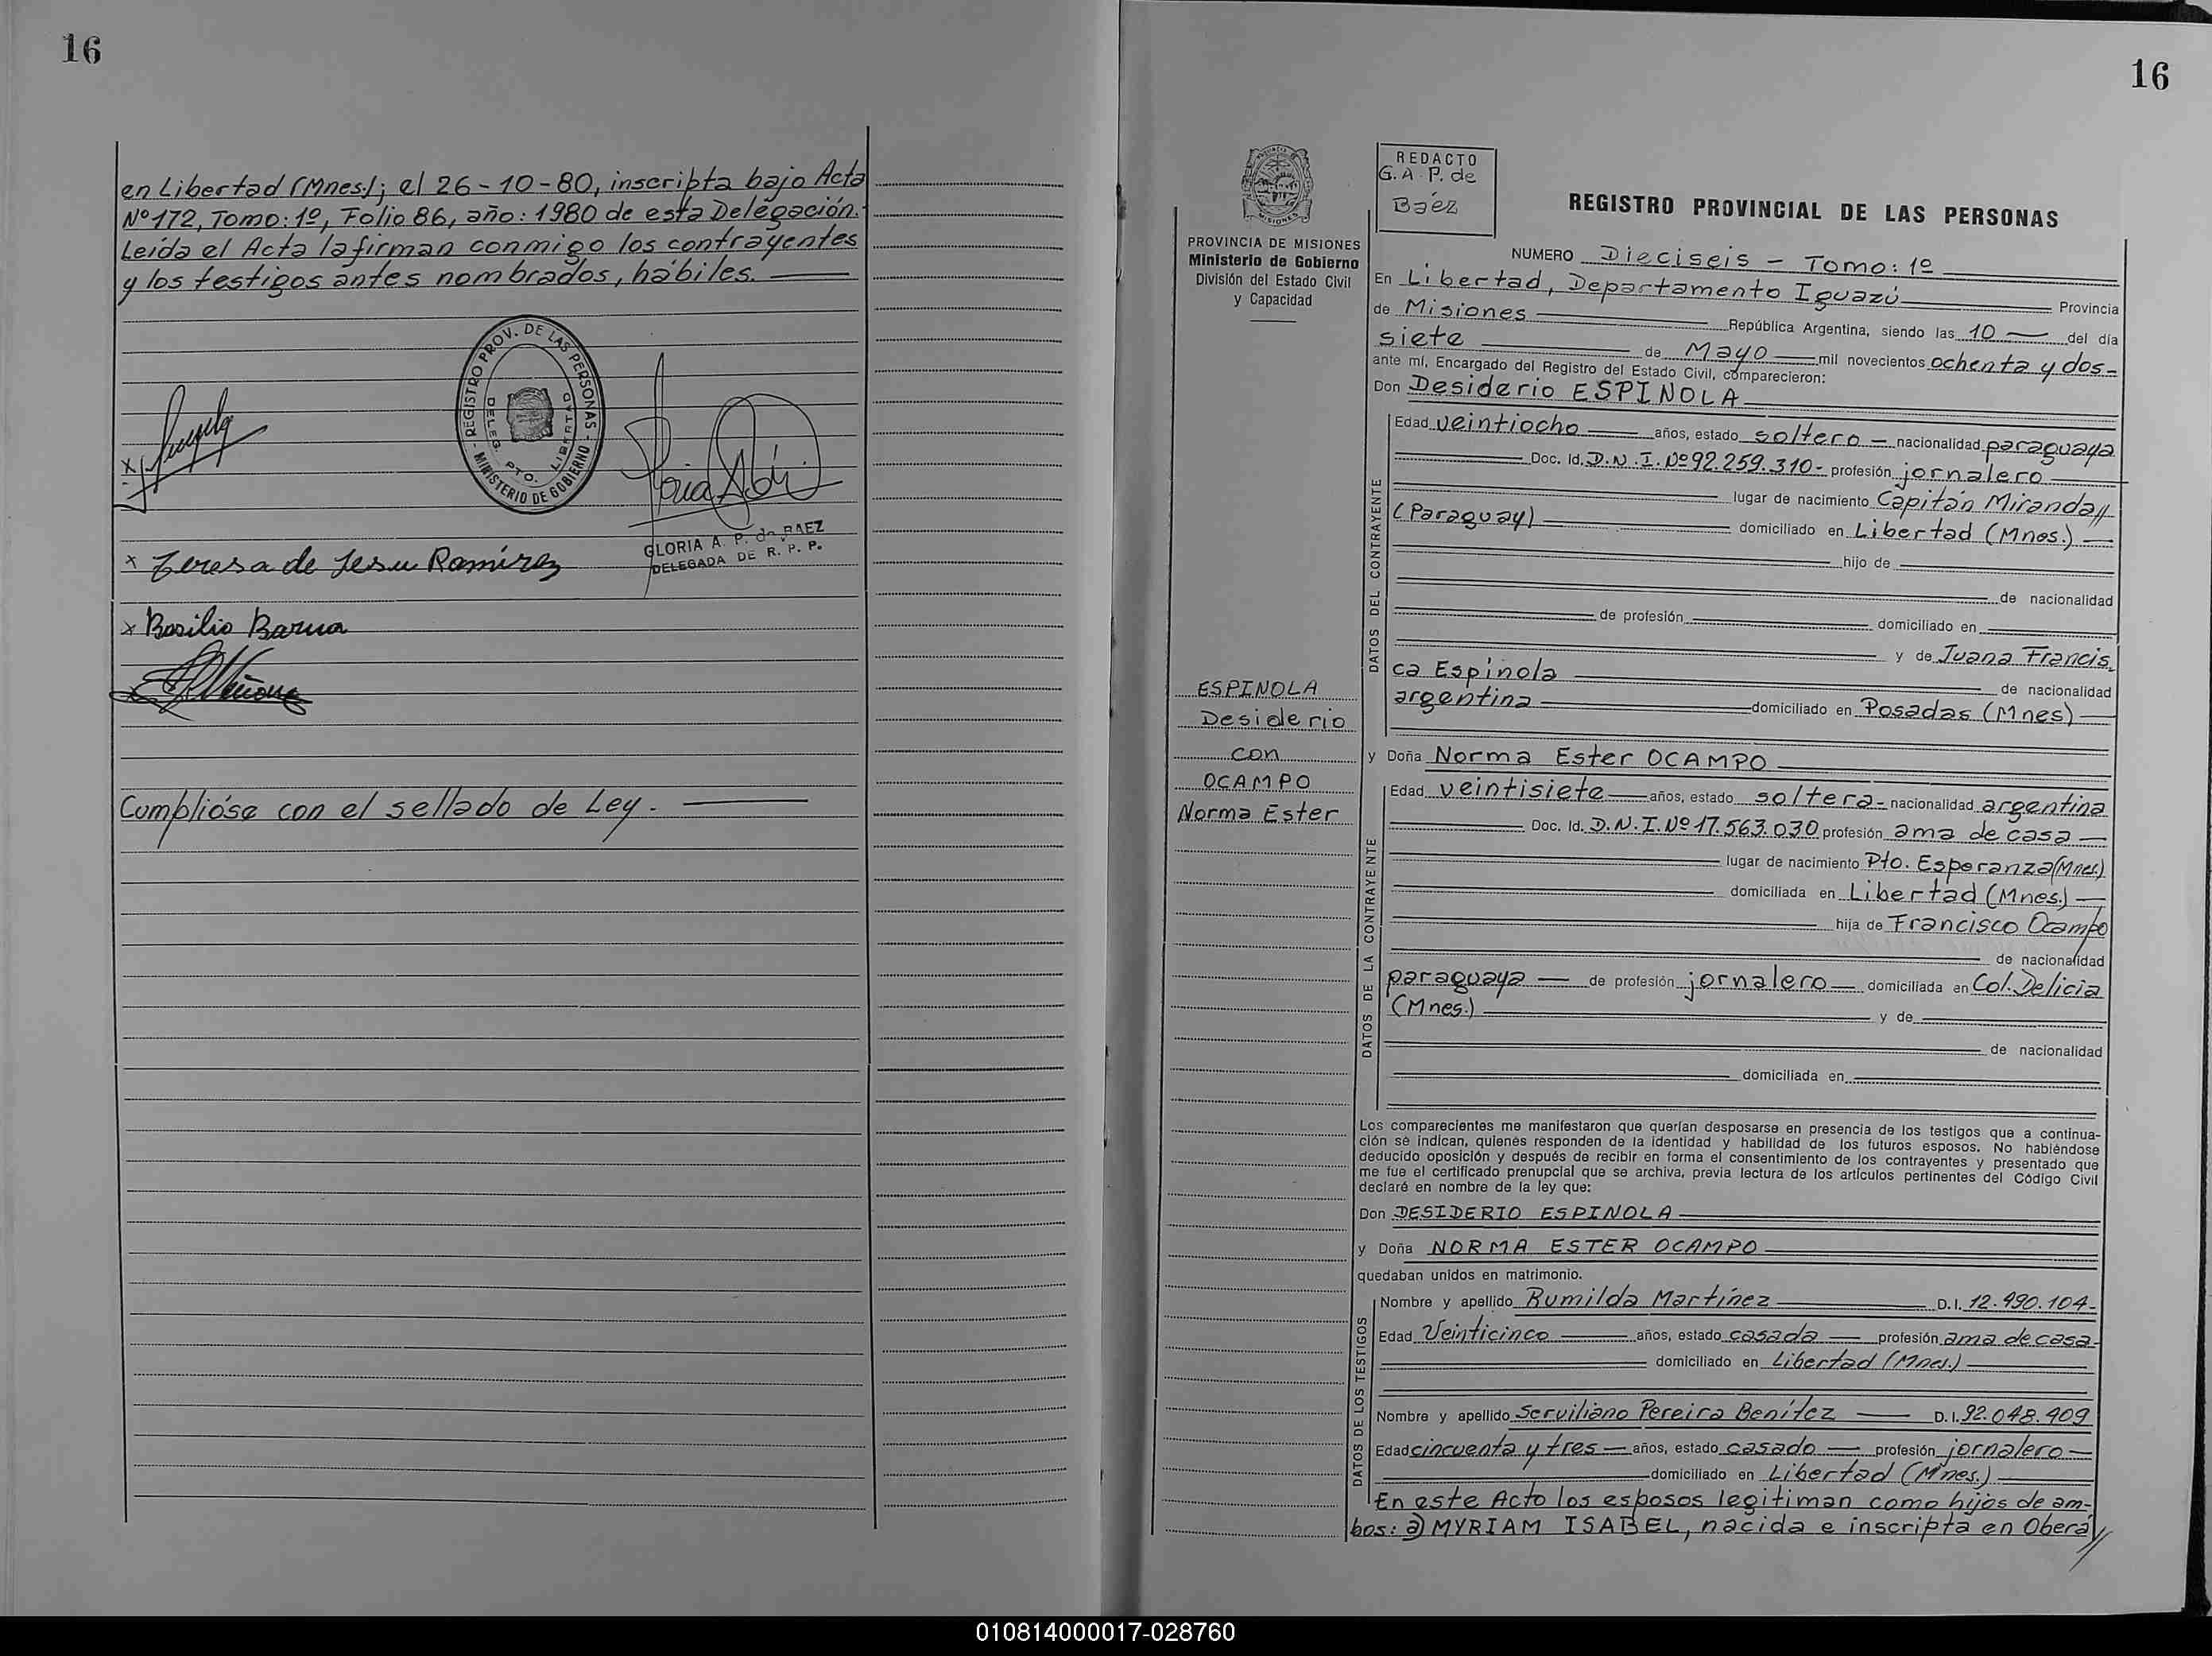 16
en Libertad (Mnes.); el 26-10-80, inscripta bajo Acta
Nº 172, Tomo: 1º, Folio 86, año: 1980 de esta Delegación.
Leída el Acta la firman conmigo los contrayentes
y los testigos antes nombrados, hábiles.
REGISTRO PROV. DE LAS PERSONAS - MINISTERIO DE GOBIERNO -
DELEG. PTO. LIBERTAD
GLORIA A. P. de BAEZ
DELEGADA DE R. P. P.
x Teresa de Jesu Ramírez
x Basilio Barua
Cumplióse con el sellado de Ley.-
16
REDACTO
G. A. P. de
Báez
MISIONES
PROVINCIA DE MISIONES
Ministerio de Gobierno
División del Estado Civil
y Capacidad
ESPINOLA
Desiderio
con
OCAMPO
Norma Ester
REGISTRO PROVINCIAL DE LAS PERSONAS
NUMERO Dieciseis - Tomo: 1º
En Libertad, Departamento Iguazú Provincia
de Misiones República Argentina, siendo las 10 del día
siete de Mayo mil novecientos ochenta y dos-
ante mí, Encargado del Registro del Estado Civil, comparecieron:
Don Desiderio ESPINOLA
DATOS DEL CONTRAYENTE
Edad veintiocho años, estado soltero - nacionalidad paraguaya
Doc. Id. D.N.I. Nº 92.259.310- profesión jornalero
lugar de nacimiento Capitán Miranda//
(Paraguay) domiciliado en Libertad (Mnes.)
hijo de
de nacionalidad
de profesión domiciliado en
y de Juana Francis
ca Espínola de nacionalidad
argentina domiciliado en Posadas (Mnes)
y Doña Norma Ester OCAMPO
DATOS DE LA CONTRAYENTE
Edad veintisiete años, estado soltera- nacionalidad argentina
Doc. Id. D.N.I. Nº 17.563.030 profesión ama de casa
lugar de nacimiento Pto. Esperanza (Mnes.)
domiciliada en Libertad (Mnes.)
hija de Francisco Ocampo
de nacionalidad
paraguaya de profesión jornalero domiciliada en Col. Delicia
(Mnes.) y de
de nacionalidad
domiciliada en
Los comparecientes me manifestaron que querían desposarse en presencia de los testigos que a continua-
ción se indican, quienes responden de la identidad y habilidad de los futuros esposos. No habiéndose
deducido oposición y después de recibir en forma el consentimiento de los contrayentes y presentado que
me fue el certificado prenupcial que se archiva, previa lectura de los artículos pertinentes del Código Civil
declaré en nombre de la ley que:
Don DESIDERIO ESPINOLA
y Doña NORMA ESTER OCAMPO
quedaban unidos en matrimonio.
DATOS DE LOS TESTIGOS
Nombre y apellido Rumilda Martínez D.I. 12.490.104-
Edad Veinticinco años, estado casada profesión ama de casa
domiciliado en Libertad (Mnes.)
Nombre y apellido Serviliano Pereira Benítez D.I. 92.048.409
Edad cincuenta y tres años, estado casado profesión jornalero
domiciliado en Libertad (Mnes.)
En este Acto los esposos legitiman como hijos de am-
bos: a) MYRIAM ISABEL, nacida e inscripta en Oberá//
010814000017-028760